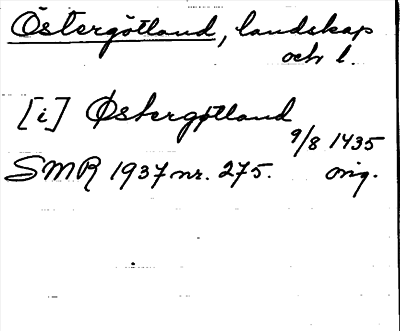 Östergötland, landskap
och l.
[i] Østergøtland
9/8 1435
SMR 1937 nr. 275. orig.